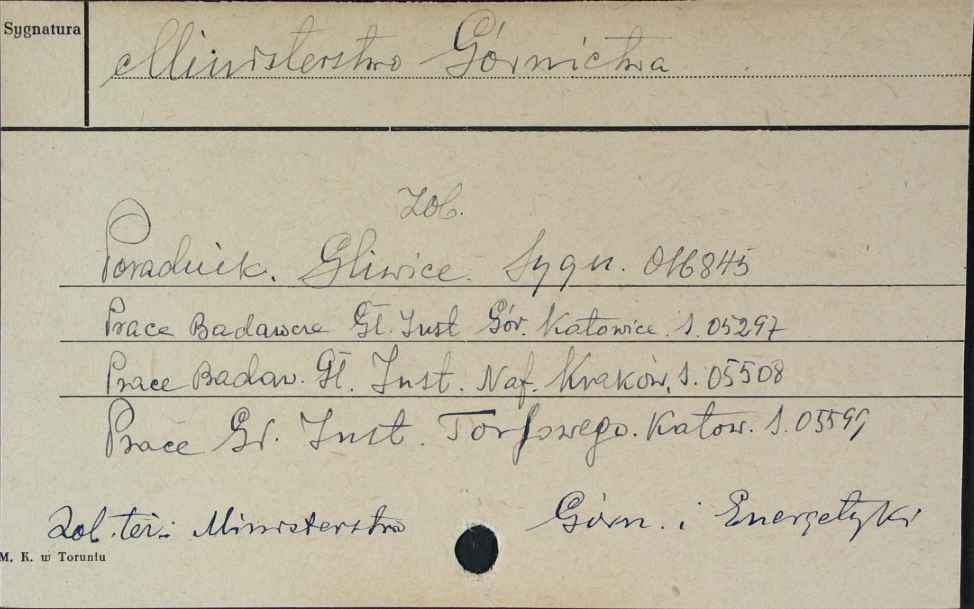 Sygnatura
Ministerstwo Górnictwa
Zob.
Poradnik. Gliwice. Sygn. 016845
Prace Badawcze Gł. Inst Gór. Katowice. S. 05297
Prace Badaw. Gł. Inst. Naf. Kraków, S. 05508
Prace Gł. Inst. Torfowego. Katow. S. 05599
Zob. też: Ministerstwo Górn. i Energetyki
M. K. w Toruniu